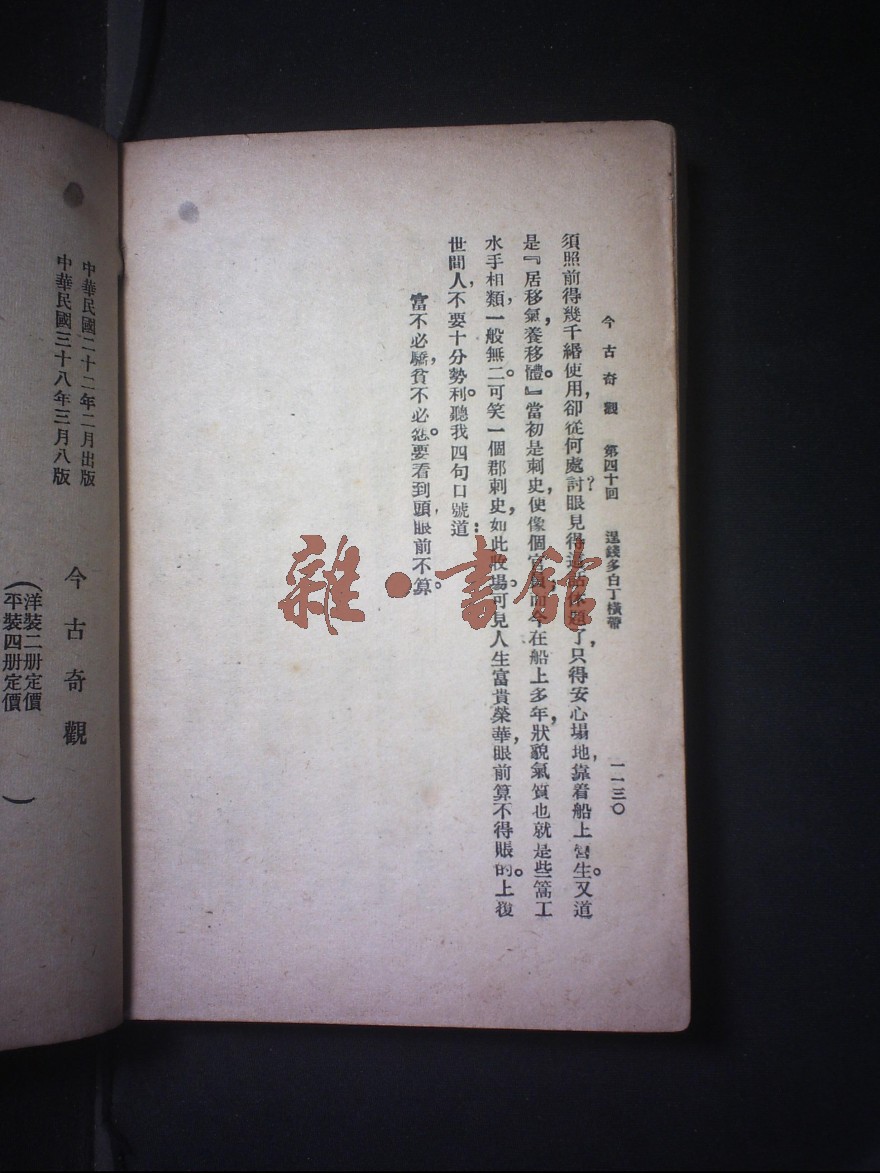 今古奇觀 第四十回 逞錢多白丁橫帶 一一三〇
須照前得幾千緡使用,卻從何處討?眼見得這話休題了,只得安心塌地,靠着船上營生。又道
是『居移氣,養移體。』當初是刺史,便像個官員;而今在船上多年,狀貌氣質,也就是些篙工
水手相類,一般無二。可笑一個郡刺史,如此收場。可見人生富貴榮華,眼前算不得賬的。上復
世間人,不要十分勢利。聽我四句口號道:
富不必驕,貧不必怨。要看到頭,眼前不算。
中華民國二十二年二月出版
中華民國三十八年三月八版
今古奇觀
(洋裝二册定價
平裝四册定價 )
雜·書館